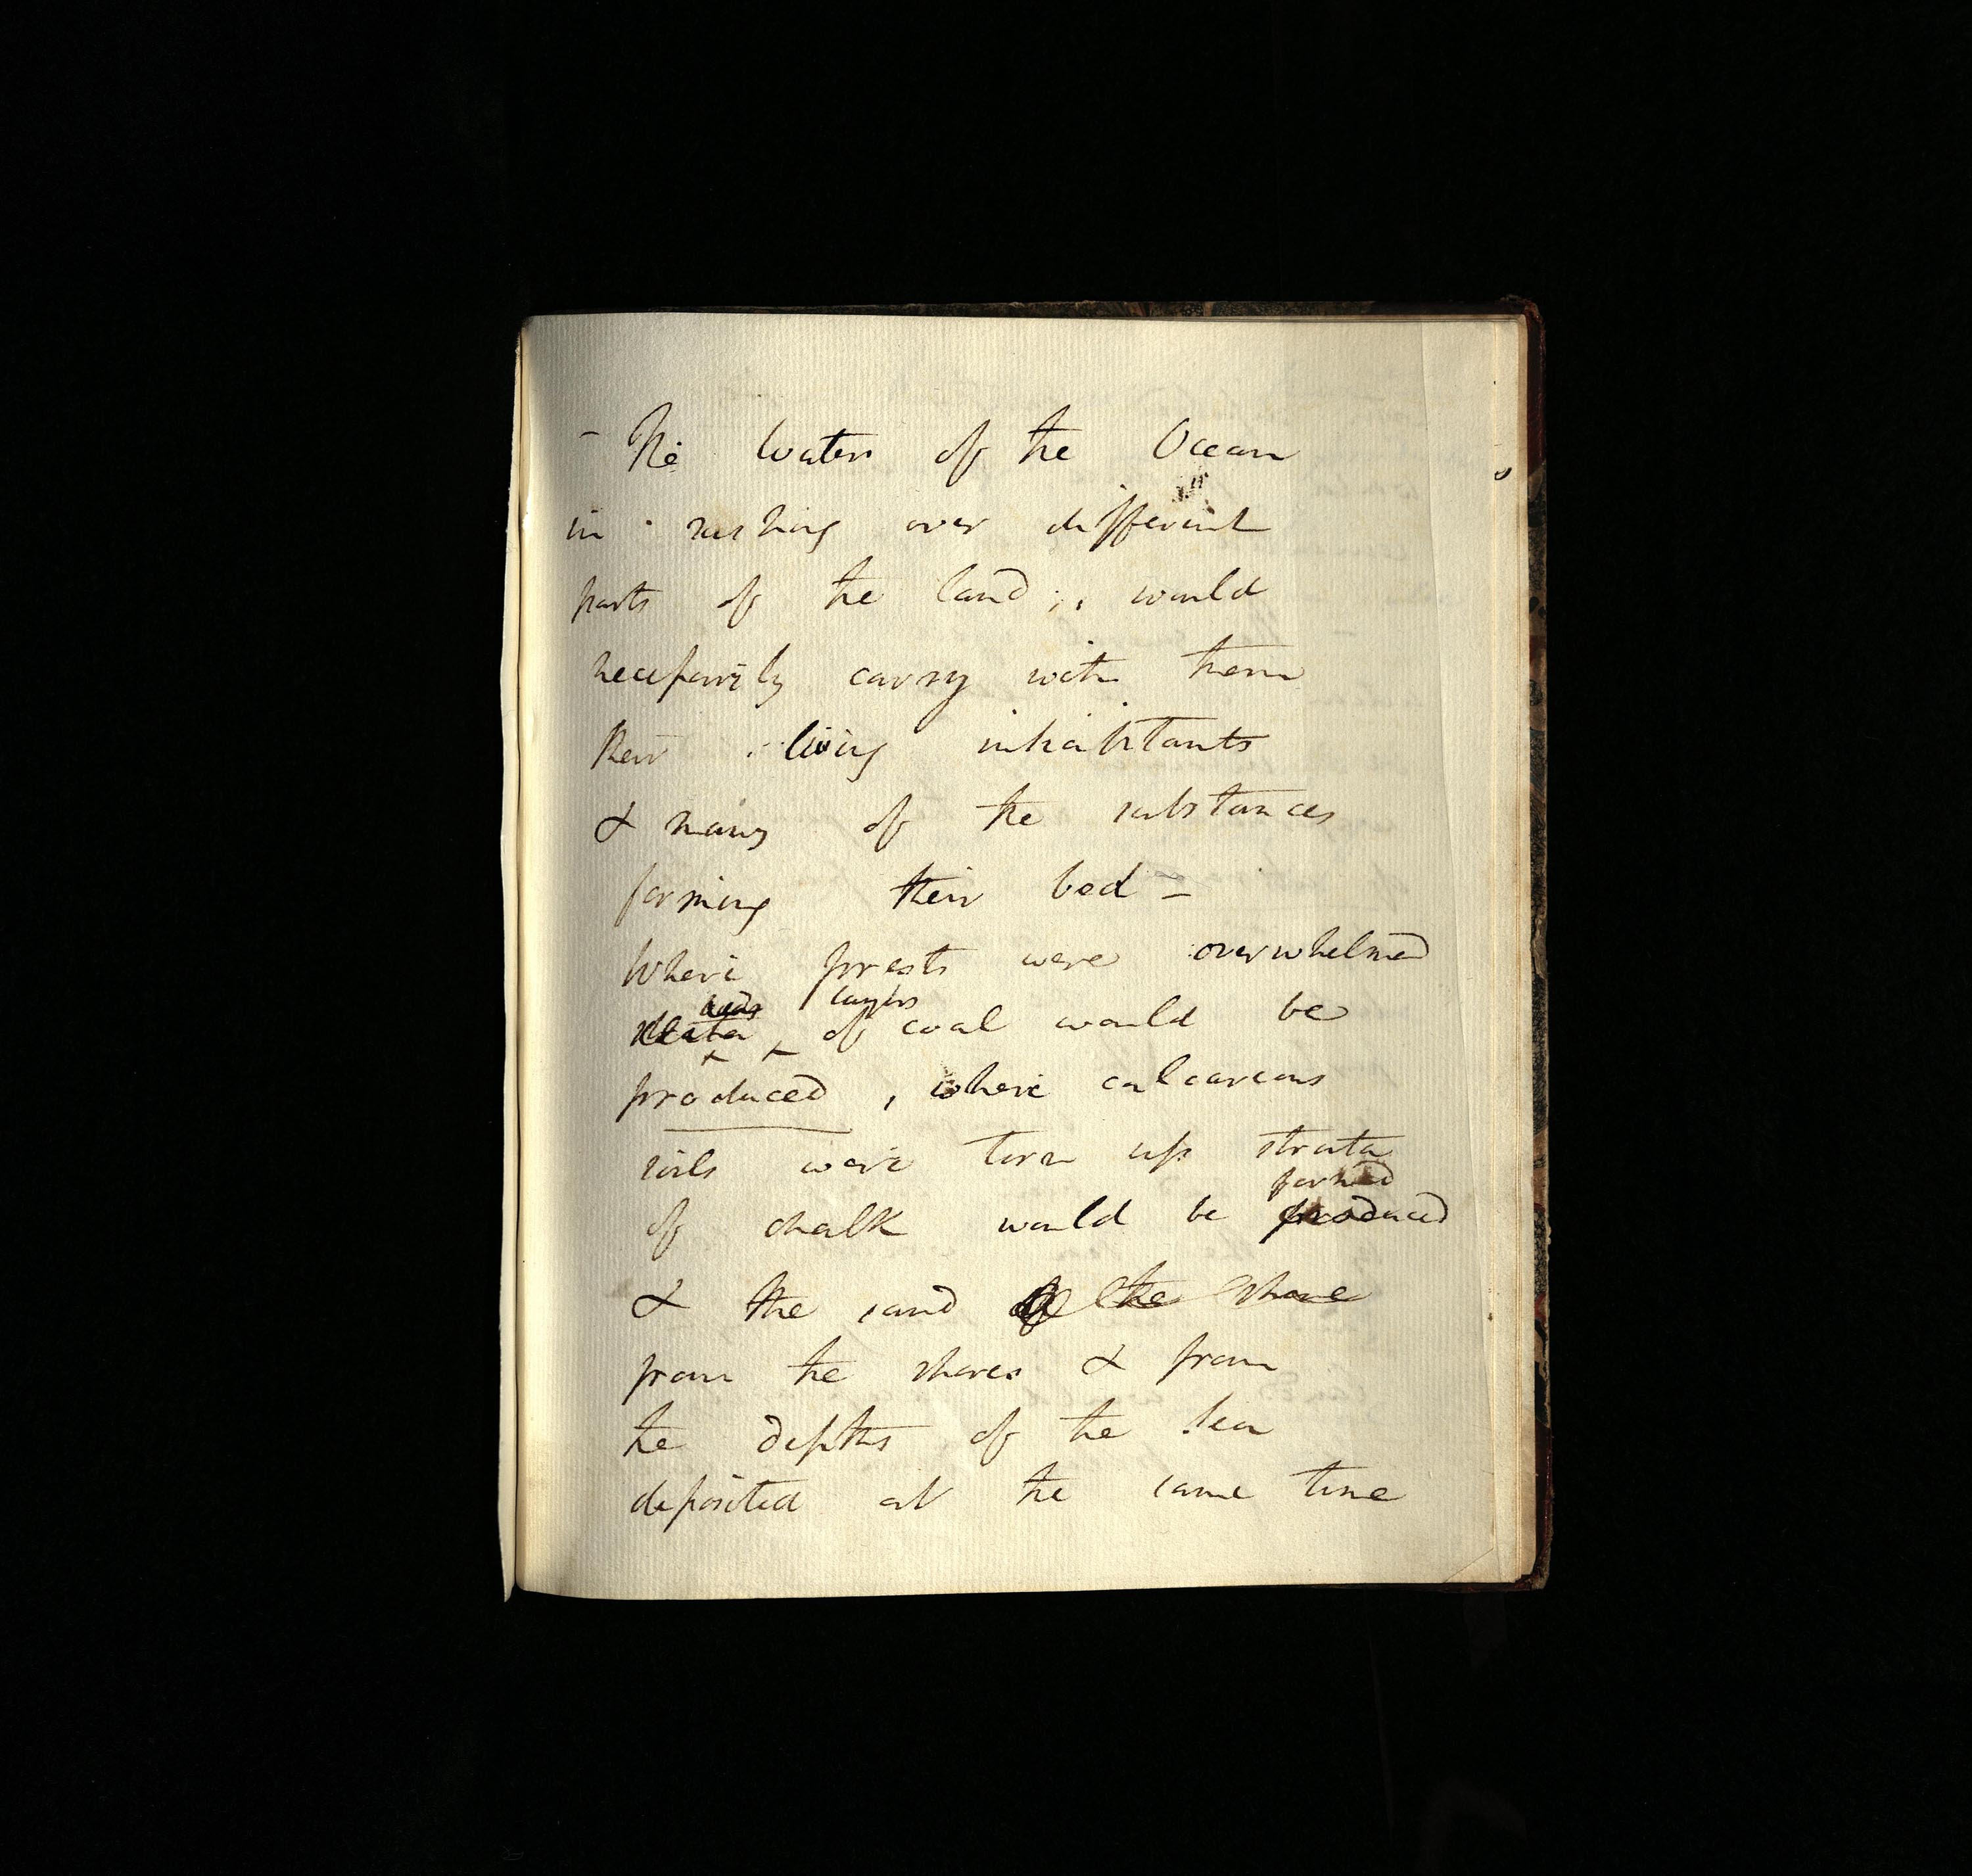 - The Waters of the Ocean
in rushing over different
parts of the land, would
necessarily carry with them
their living inhabitants
& many of the substances
forming their bed –
Where forests were overwhelmed
beds layers
strata of coal would be
produced, where calcareous
soils were torn up strata
formed
of chalk would be produced
& the sand of the shore
from the shores & from
the depths of the sea
deposited at the same time